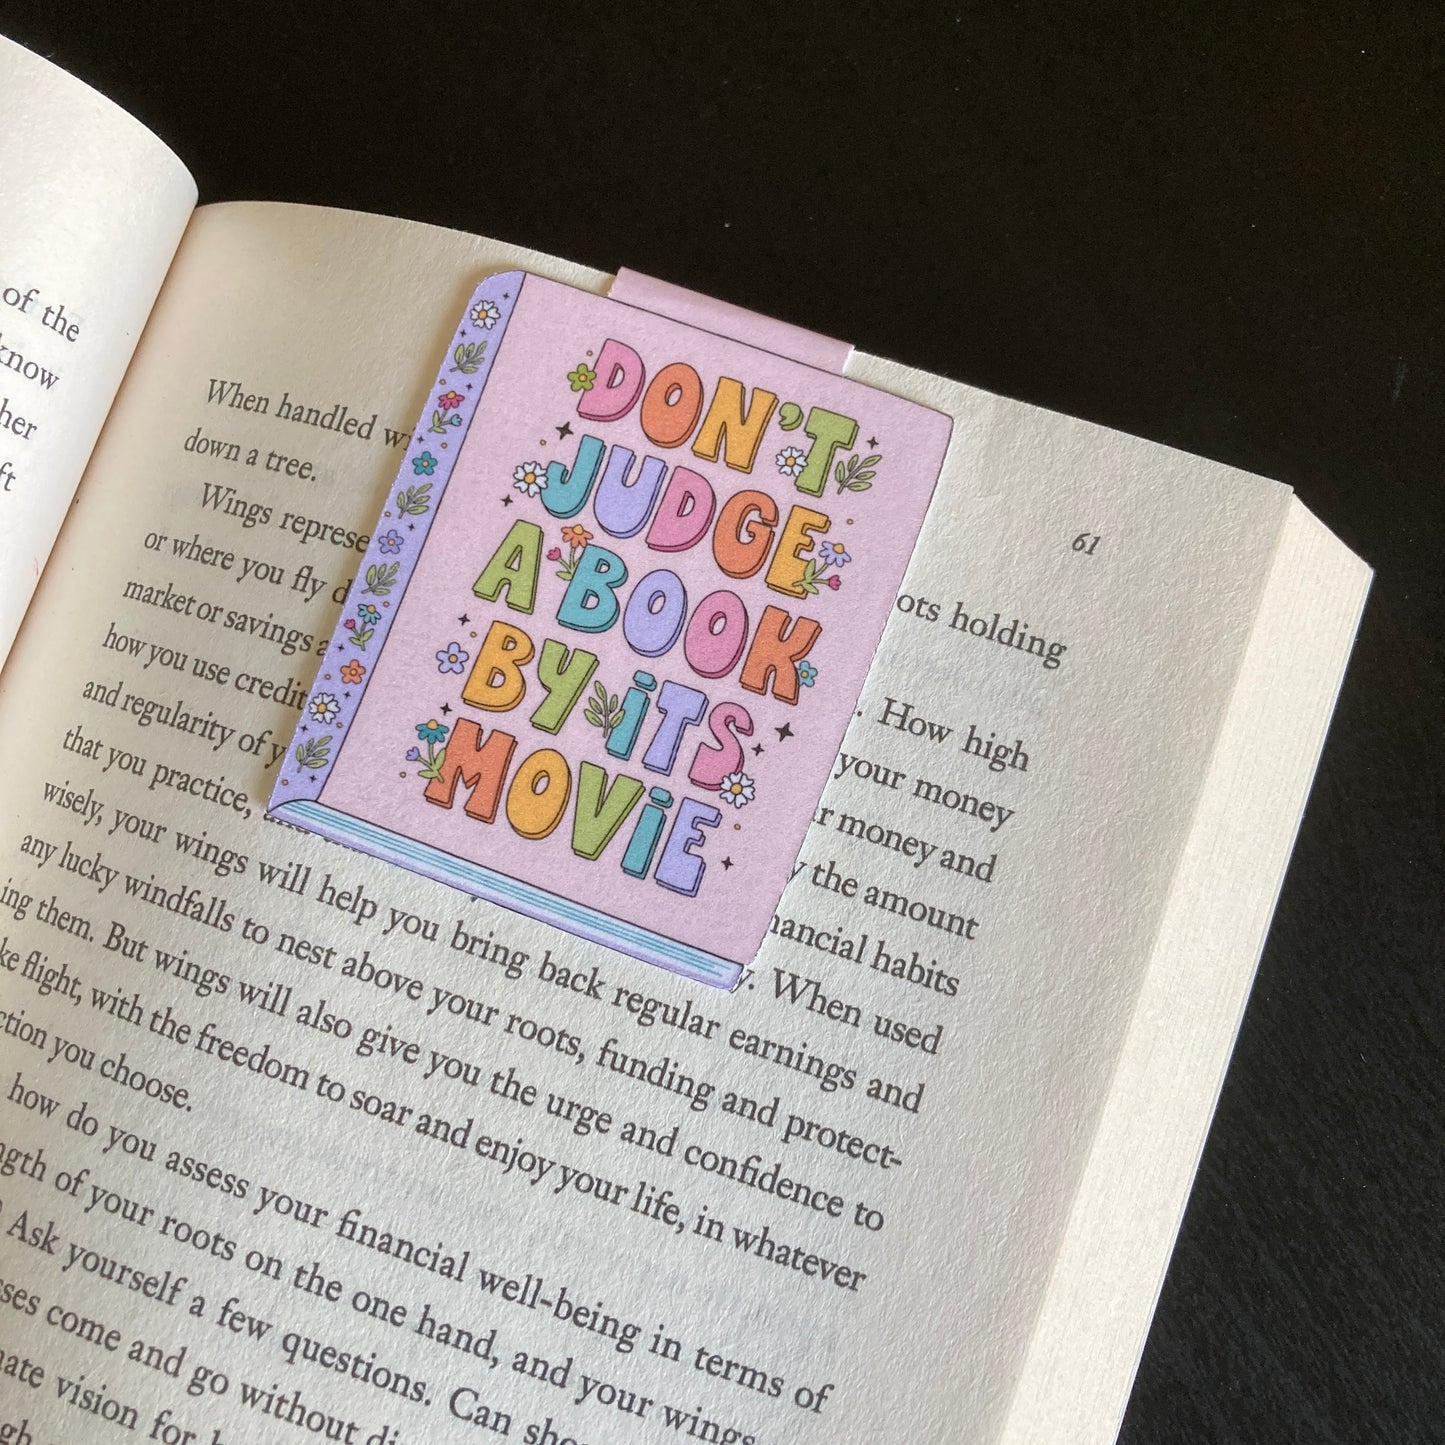 of the
know
her
ft
DON'T
JUDGE
A BOOK
BY iTS
MOViE
61
When handled
ots holding
down a tree.
Wings
. How high
or where you fly
your money
market or savings
money and
how you use credit
the amount
and regularity of
habits
that you practice,
. When used
wisely, your wings will help you bring back regular earnings and
any lucky windfalls to nest above your roots, funding and protect-
ing them. But wings will also give you the urge and confidence to
flight, with the freedom to soar and enjoy your life, in whatever
you choose.
how do you assess your financial well-being in terms of
of your roots on the one hand, and your wings
Ask yourself a few questions. Can
come and go without
vision for